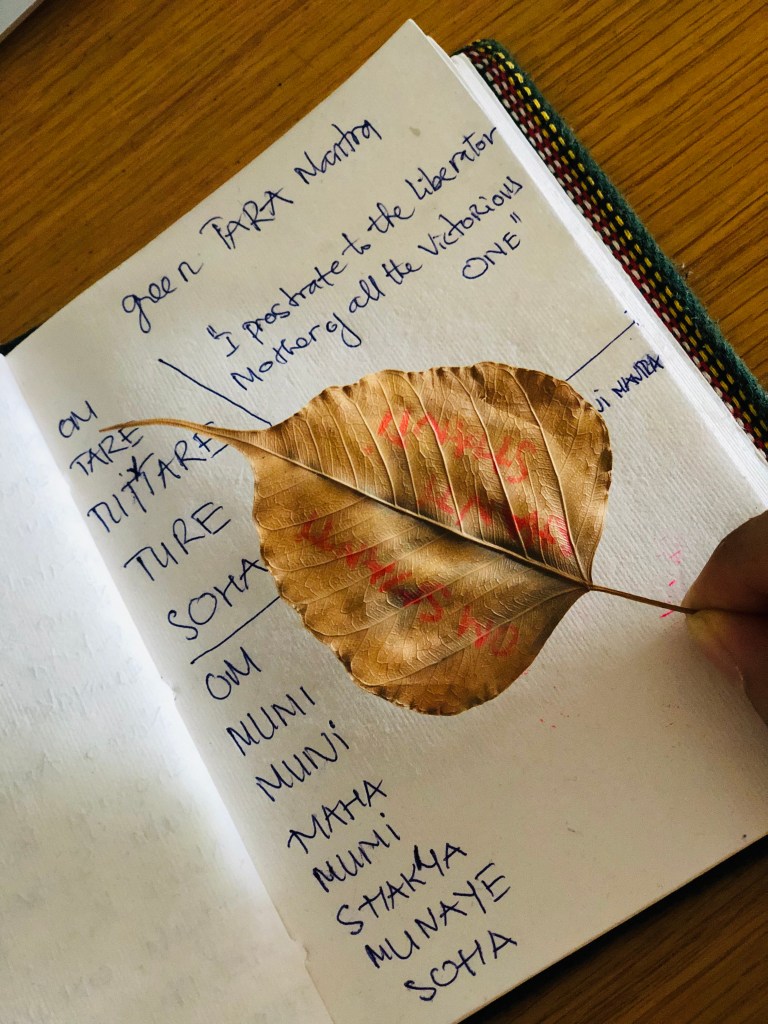 green TARA Mantra
"I prostrate to the liberator
Mother of all the Victorious
ONE"
OM
TARE
TUTTARE
TURE
SOHA
MANTRA
OM
MUMI
MUNi
MAHA
MUMi
SHAKYA
MUNAYE
SOHA